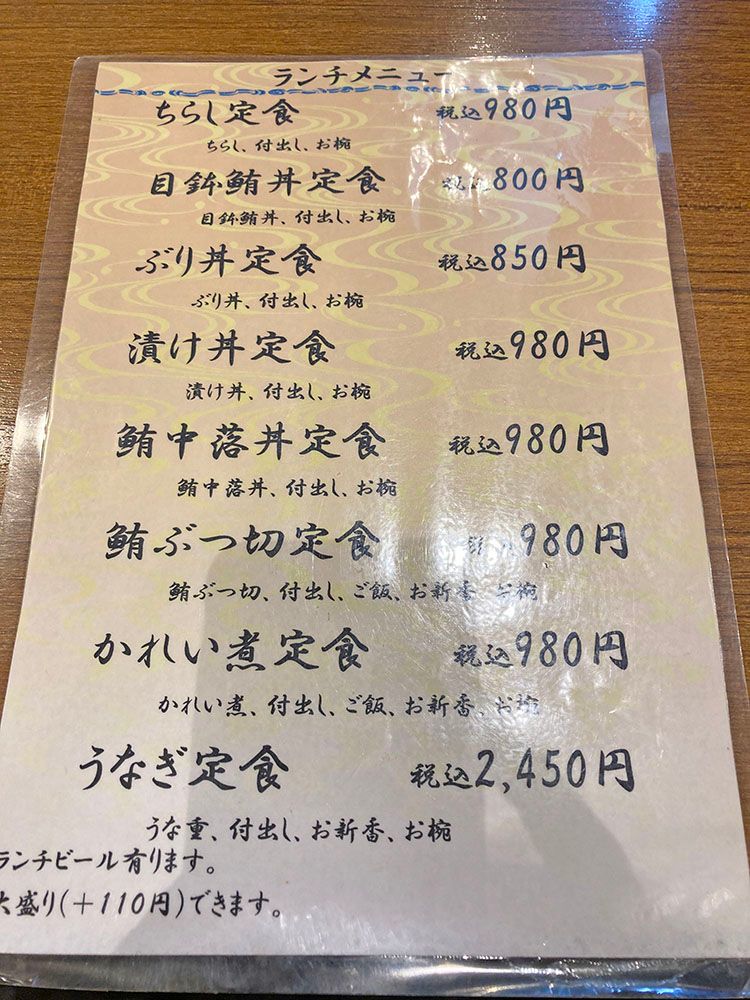 ランチメニュー
ちらし定食 税込980円
ちらし、付出し、お椀
目鉢鮪丼定食 税込800円
目鉢鮪丼、付出し、お椀
ぶり丼定食 税込850円
ぶり丼、付出し、お椀
漬け丼定食 税込980円
漬け丼、付出し、お椀
鮪中落丼定食 税込980円
鮪中落丼、付出し、お椀
鮪ぶつ切定食 980円
鮪ぶつ切、付出し、ご飯、お新香、お椀
かれい煮定食 税込980円
かれい煮、付出し、ご飯、お新香、お椀
うなぎ定食 税込2,450円
うな重、付出し、お新香、お椀
ランチビール有ります。
大盛り(+110円)できます。